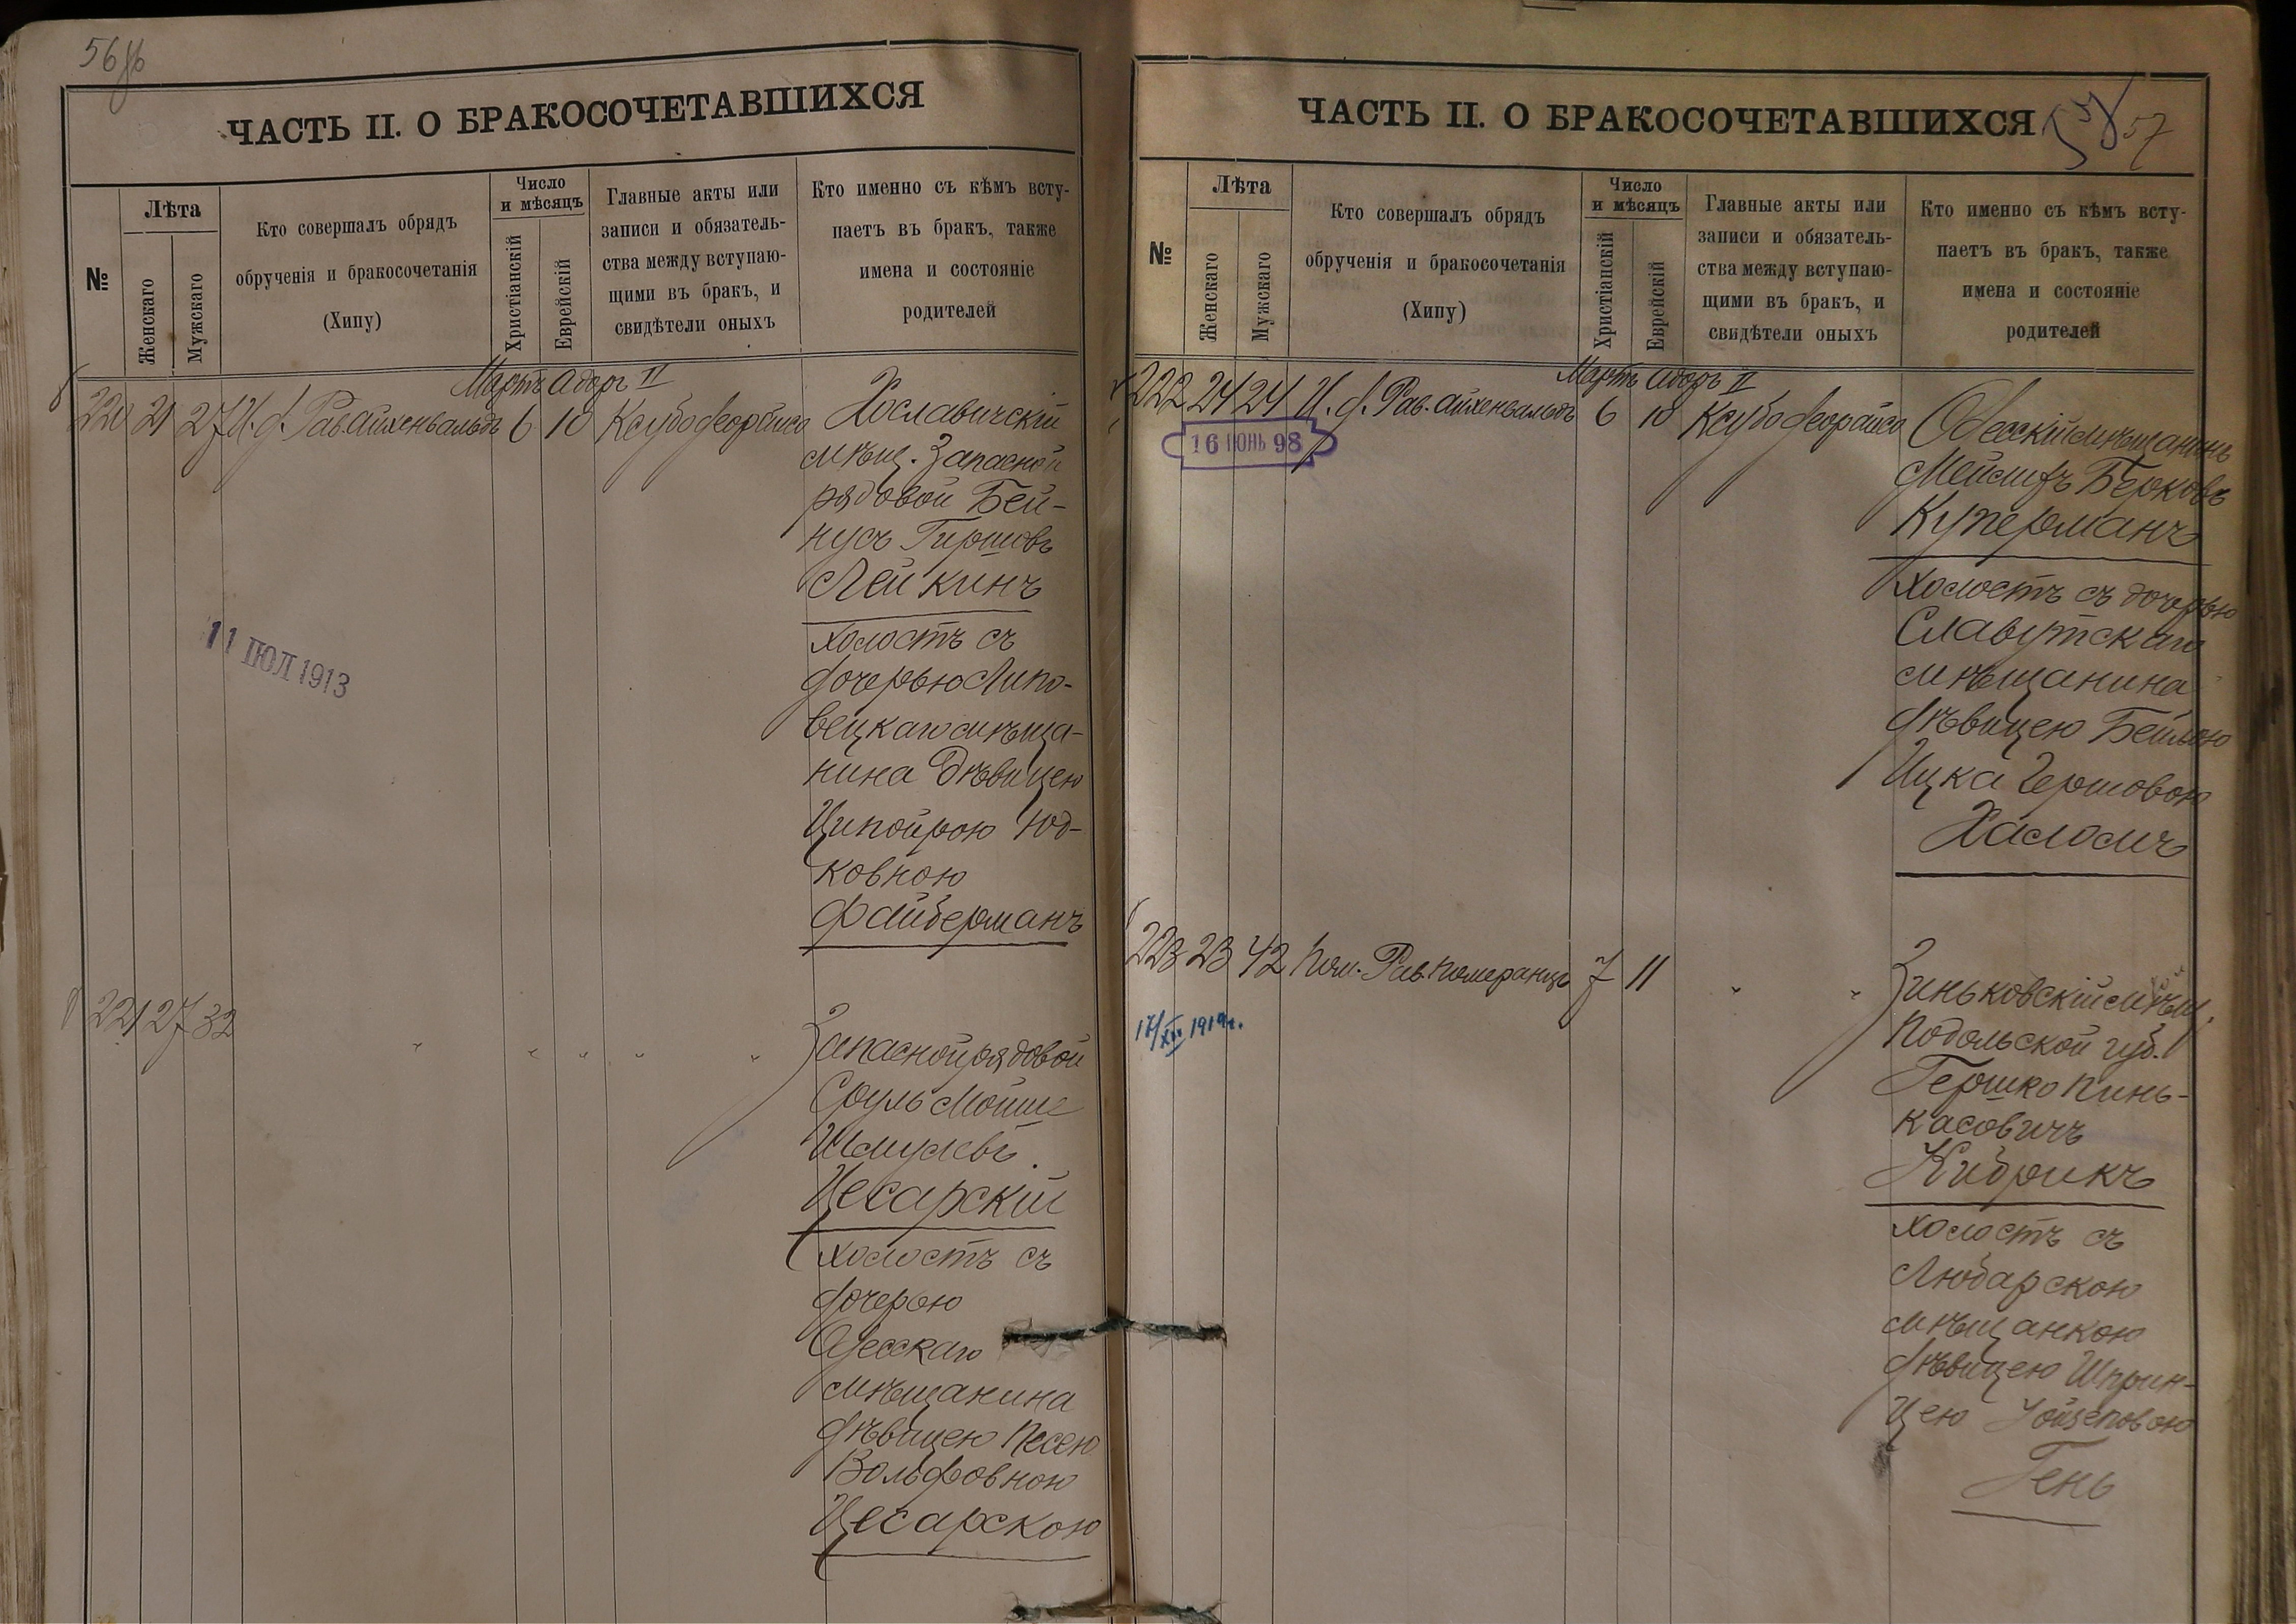 ЧАСТЬ II. О БРАКОСОЧЕТАВШИХСЯ
№
Лѣта
Женскаго
Мужскаго
Кто совершалъ обрядъ
обрученія и бракосочетанія
(Хипу)
Число
и мѣсяцъ
Христіанскій
Еврейскій
Главные акты или
записи и обязатель-
ства между вступаю-
щими въ бракъ, и
свидѣтели оныхъ
Кто именно съ кѣмъ всту-
паетъ въ бракъ, также
имена и состояніе
родителей
Мартъ Адоръ II
220 21 27 И. д. Рав. Айхенвальдъ 6 10 Ксубо деорайсо
Хославичскій
мѣщ. Запасной
рядовой Бей-
нусъ Гиршовъ
Лейкинъ
холостъ съ
дочерью Липо-
вецкаго мѣща-
нина Дѣвицею
Ципойрою Юд-
ковною
Файберманъ
11 ІЮЛ 1913
221 27 32 " " " " "
Запасной рядовой
Сруль Мойше
Шмулевъ
Цесарскій
холостъ съ
дочерью
Одесскаго
мѣщанина
дѣвицею Песею
Вольфовною
Цесарскою
ЧАСТЬ II. О БРАКОСОЧЕТАВШИХСЯ
57
№
Лѣта
Женскаго
Мужскаго
Кто совершалъ обрядъ
обрученія и бракосочетанія
(Хипу)
Число
и мѣсяцъ
Христіанскій
Еврейскій
Главные акты или
записи и обязатель-
ства между вступаю-
щими въ бракъ, и
свидѣтели оныхъ
Кто именно съ кѣмъ всту-
паетъ въ бракъ, также
имена и состояніе
родителей
Мартъ Адоръ II
222 24 24 И. д. Рав. Айхенвальдъ 6 10 Ксубо деорайсо
16 ІЮНЬ 98
Одесскій мѣщанинъ
Мейлихъ Берковъ
Куперманъ
холостъ съ дочерью
Славутскаго
мѣщанина
дѣвицею Бейлею
Ицка Гершовою
Халомъ
223 23 42 Пом. Рав. Померанцъ 7 11 " "
17/XII 1919 г.
Зиньковскій мѣщ.
Подольской губ.
Гершко Пинь-
касовичъ
Кибрикъ
холостъ съ
Любарскою
мѣщанкою
дѣвицею Шприн-
цею Іойсеповою
Гень